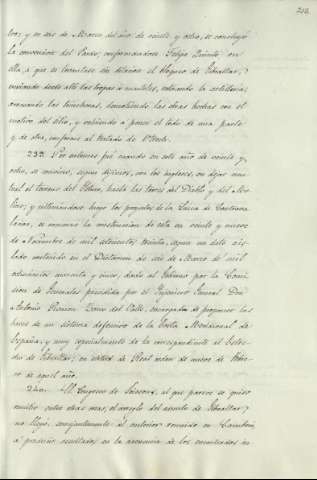 tros; y en seis de Marzo del año de veinte y ocho, se concluyó
la convencion del Pardo, comprometiendose Felipe Quinto en
ella, á que se levantase sin dilacion el bloqueo de Gibraltar;
retirando desde allí las tropas á cuarteles, retirando la artillería;
arrasando las trincheras, demoliendo las obras hechas con el
motivo del sitio, y volviendo á poner el todo de una parte
y de otra, conforme al tratado de Utrech.
239. Por entonces fué cuando en este año de veinte y
ocho, se convino, segun dijimos, con los ingleses, en dejar neu-
tral el terreno del Istmo, hasta las torres del Diablo y del Mo-
lino; y
luego los proyectos de la Linea de Contrava-
lacion, se comenzó la construccion de esta en veinte y nueve
de Noviembre de mil setecientos treinta, segun un dato
contenido en el Dictamen de seis de Marzo de mil
ochocientos cuarenta y cinco, dado al Gobierno por la Comi-
sion de Generales presidida por el Ingeniero General Don
Antonio Remon Zarco del Valle, encargada de proponer las
bases de un sistema defensivo de la Costa Meridional de
España, y muy especialmente de la correspondiente al Estre-
cho de Gibraltar, en virtud de Real orden de nueve de Febre-
ro de aquel año.
240. El Congreso de Soissons, al que parece se quiso
remitir entre otras cosas, el arreglo del asunto de Gibraltar;
no llegó, semejantemente al anterior reunido en Cambray,
á producir resultados, en la avenencia de los encontrados in-